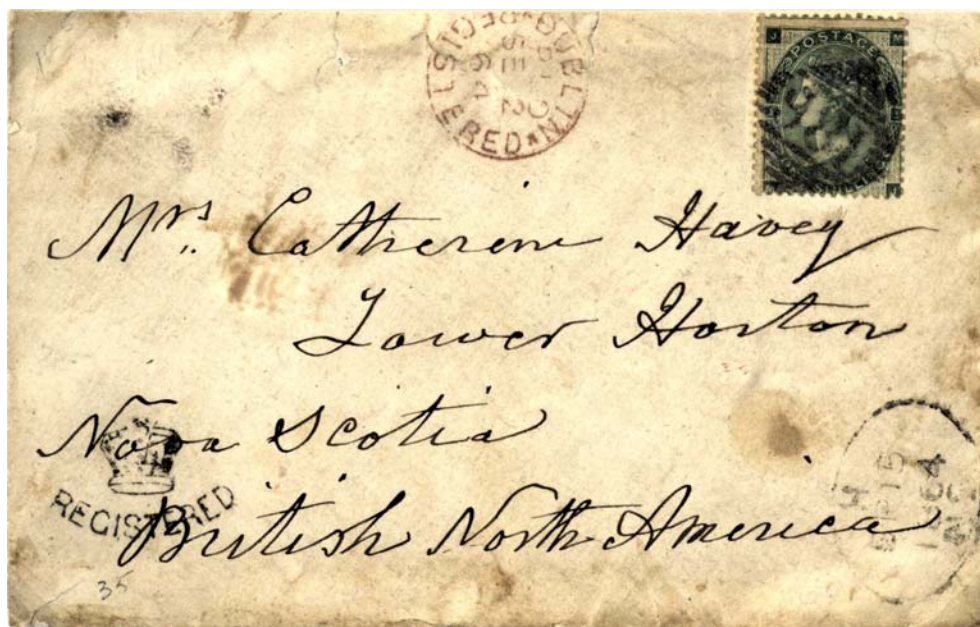 REGISTERED
SE 2
64
POSTAGE
J M
Mrs. Catherine Havey
Lower Horton
Nova Scotia
British North America
REGISTERED
H
15
1864
35